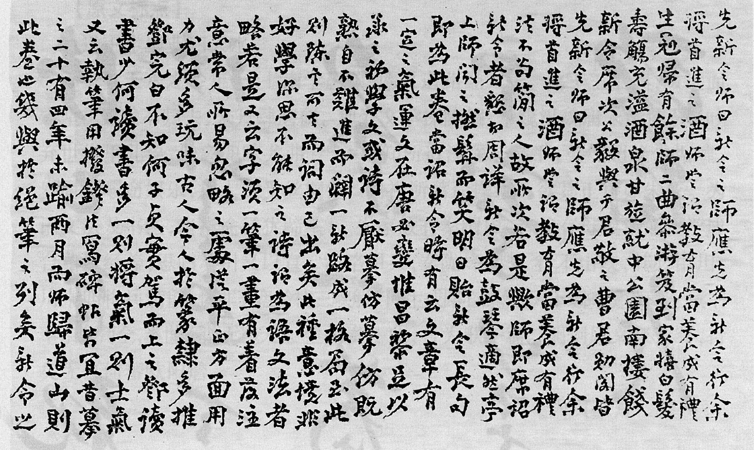 先新令師曰新令之師應先為新令行余
將首進之酒師嘗詔教育當養成有禮
生冠歸有餘師二曲參游笈到家梅白髮
壽觴充溢酒泉甘旋就中公園南樓餞
新令席次公毅與于君敬之曹君劬閣皆
先新令師曰新令之師應先為新令行余
將首進之酒師嘗詔教育當養成有禮
法不苟簡之人故所次若是興師即席詔
新令者愁如周諱新令為鼓琴適然亭
上師聞之撚髯而笑明日貽新令長句
即為此卷當詔新令時有云文章有
一定之氣運文在唐必變惟昌黎足以
承之初學文或詩不厭摹仿摹仿既
熟自不難進而闢一新路成一格局至此
則陳言可去而詞由己出矣此種意境非
好學深思不能知之詩詔為語文法者
略若是又云字須一筆一畫有着落注
意常人所易忽略之處從平正方面用
力尤須多玩味古人今人於篆隸多推
鄧完白不知何子貞實駕而上之鄧讀
書少何讀書多一則將氣一則士氣
又云執筆用撥鐙法寫碑帖皆宜昔摹
之二十有四年未踰兩月而師歸道山則
此卷也幾與於絕筆之列矣新令之